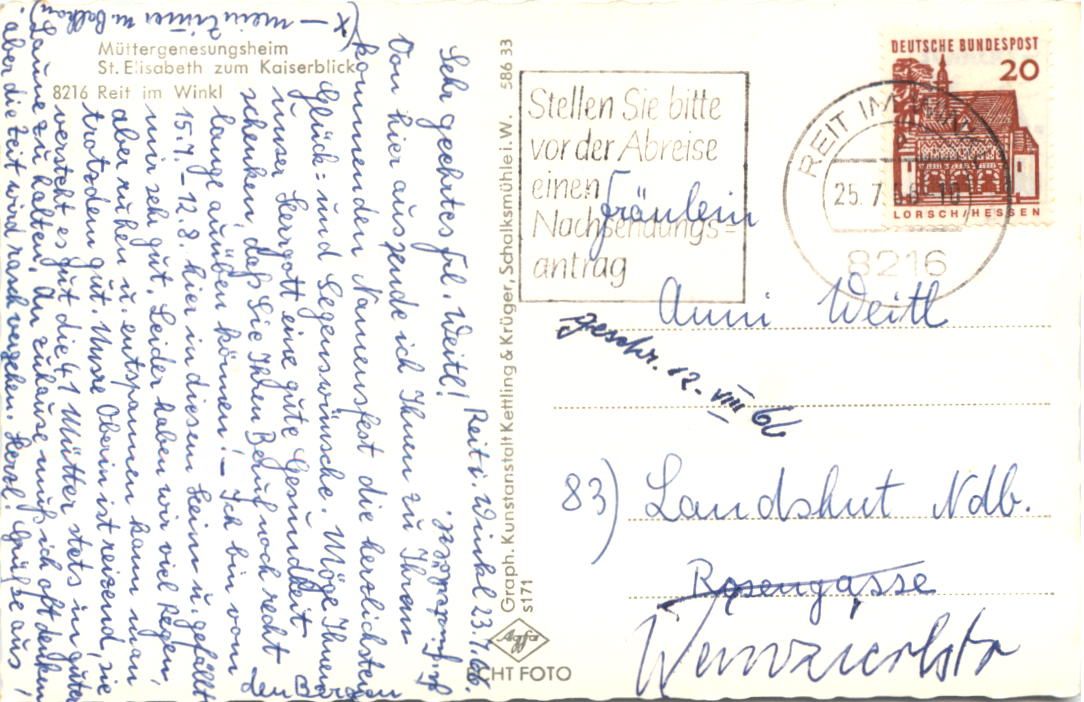 Müttergenesungsheim
St. Elisabeth zum Kaiserblick
8216 Reit im Winkl
x) – mein Zimmer m. Balkon
Reit i. Winkl 23.7.66.
Sehr geehrtes Frl. Weitl!
Von hier aus sende ich Ihnen zu Ihrem
kommenden Namensfest die herzlichsten
Glück- und Segenswünsche. Möge Ihnen
unser Herrgott eine gute Gesundheit
schenken, daß Sie Ihren Beruf noch recht
lange ausüben können! – Ich bin vom
15.7. – 12.8. hier in diesem Heim u. gefällt
mir sehr gut. Leider haben wir viel Regen,
aber ruhen u. entspannen kann man
trotzdem gut. Unsre Oberin ist reizend, sie
versteht es gut die 41 Mütter stets in guter
Laune zu halten. An zuhause muß ich oft denken
aber die Zeit wird rasch vergehen. Herzl. Grüße aus
den Bergen
Graph. Kunstanstalt Kettling & Krüger, Schalksmühle i. W. 586 33
s171
Agfa
ECHT FOTO
Stellen Sie bitte
vor der Abreise
einen
Nachsendungs=
antrag
REIT IM WINKL
25.7.66-18
8216
DEUTSCHE BUNDESPOST
20
LORSCH/HESSEN
Fräulein
Anni Weitl
geschr. 12. VIII 66
83) Landshut Ndb.
Rosengasse